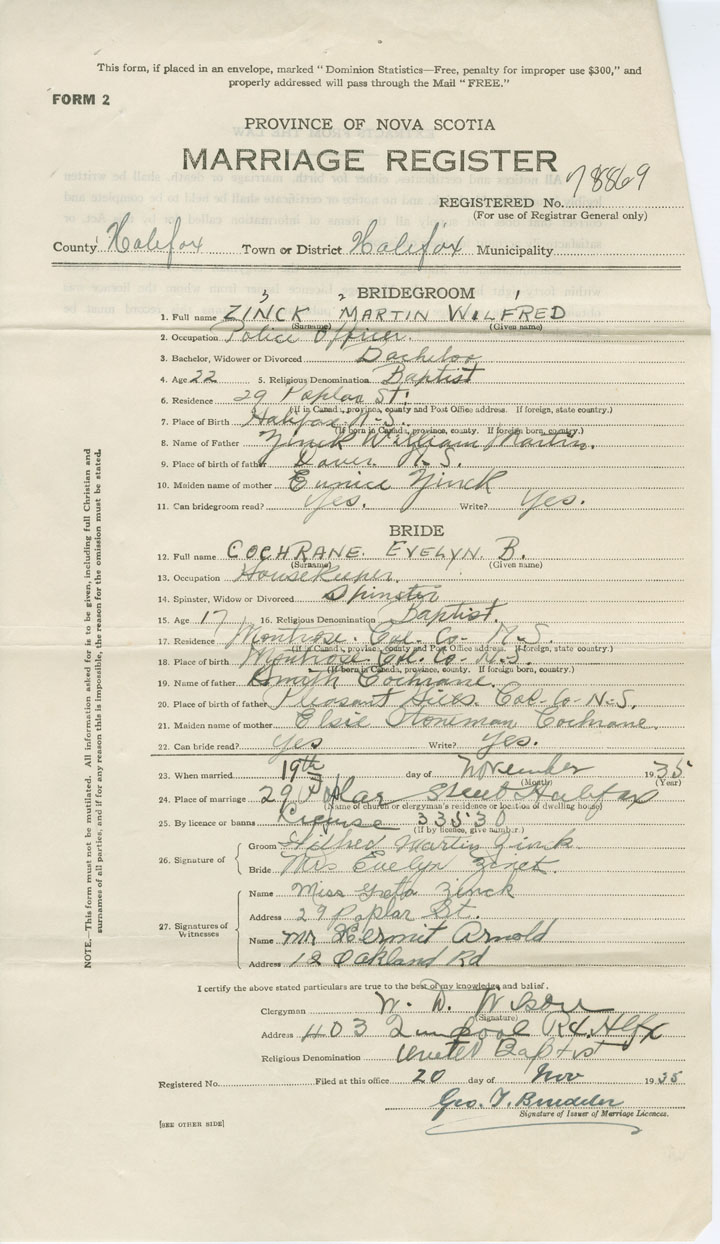 This form, if placed in an envelope, marked "Dominion Statistics—Free, penalty for improper use $300," and
properly addressed will pass through the Mail "FREE."
FORM 2
PROVINCE OF NOVA SCOTIA
MARRIAGE REGISTER
78869
REGISTERED No.
(For use of Registrar General only)
County Halifax Town or District Halifax Municipality
BRIDEGROOM
3 2 1
1. Full name ZINCK MARTIN WILFRED
(Surname) (Given name)
2. Occupation Police Officer.
3. Bachelor, Widower or Divorced Bachelor
4. Age 22 5. Religious Denomination Baptist
6. Residence 29 Poplar St.
(If in Canada, province, county and Post Office address. If foreign, state country.)
7. Place of Birth Halifax N.S.
(If born in Canada, province, county. If foreign born, country.)
8. Name of Father Zinck William Martin.
9. Place of birth of father Dover N.S.
10. Maiden name of mother Eunice Zinck
11. Can bridegroom read? Yes. Write? Yes.
BRIDE
12. Full name COCHRANE EVELYN B.
(Surname) (Given name)
13. Occupation Housekeeper.
14. Spinster, Widow or Divorced Spinster
15. Age 17 16. Religious Denomination Baptist.
17. Residence Montrose. Col. Co. N.S.
(If in Canada, province, county and Post Office address. If foreign, state country.)
18. Place of birth Montrose Col. Co. N.S.
(If born in Canada, province, county. If foreign born, country.)
19. Name of father Smith Cochrane.
20. Place of birth of father Pleasant Col. Co. N.S.
21. Maiden name of mother Elsie Stoneman Cochrane.
22. Can bride read? Yes Write? Yes.
23. When married 19th day of November 1935
(Month) (Year)
24. Place of marriage 29 Poplar Street Halifax
(Name of church or clergyman's residence or location of dwelling house)
25. By licence or banns License 33530
(If by licence, give number.)
26. Signature of
Groom Wilfred Martin Zinck
Bride Mrs Evelyn Zinck.
27. Signatures of Witnesses
Name Miss Greta Zinck
Address 29 Poplar St.
Name Mr Kermit Arnold
Address 12 Oakland Rd
I certify the above stated particulars are true to the best of my knowledge and belief.
Clergyman W. D. Wilson
(Signature)
Address 403 Rd. Hlfx
Religious Denomination United Baptist
Registered No. Filed at this office 20 day of Nov 1935
Geo. T.
Signature of Issuer of Marriage Licences.
[SEE OTHER SIDE]
NOTE.—This form must not be mutilated. All information asked for is to be given, including full Christian and
surnames of all parties, and if for any reason this is impossible, the reason for the omission must be stated.